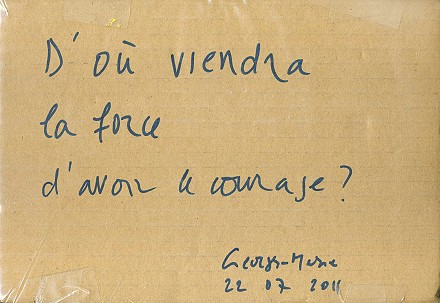 D'où viendra
la force
d'avoir le courage?
Georges-Marie
22 07 2011